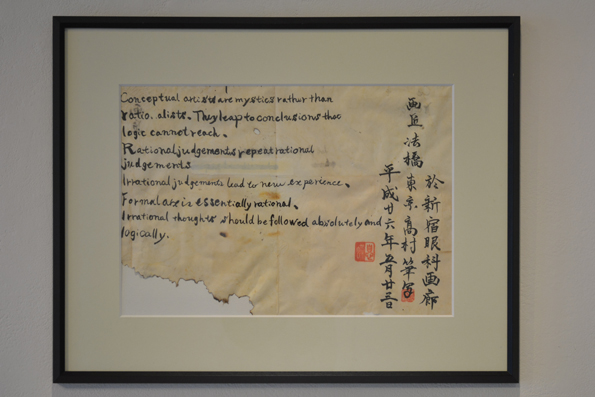 Conceptual artists are mystics rather than
ratio. alists. They leap to conclusions that
logic cannot reach.
Rational judgements repeat rational
judgements
Irrational judgements lead to new experience.
Formal art is essentially rational.
Irrational thoughts should be followed absolutely and
logically.
於新宿眼科画廊
東京高村筆写
平成廿六年五月廿三日